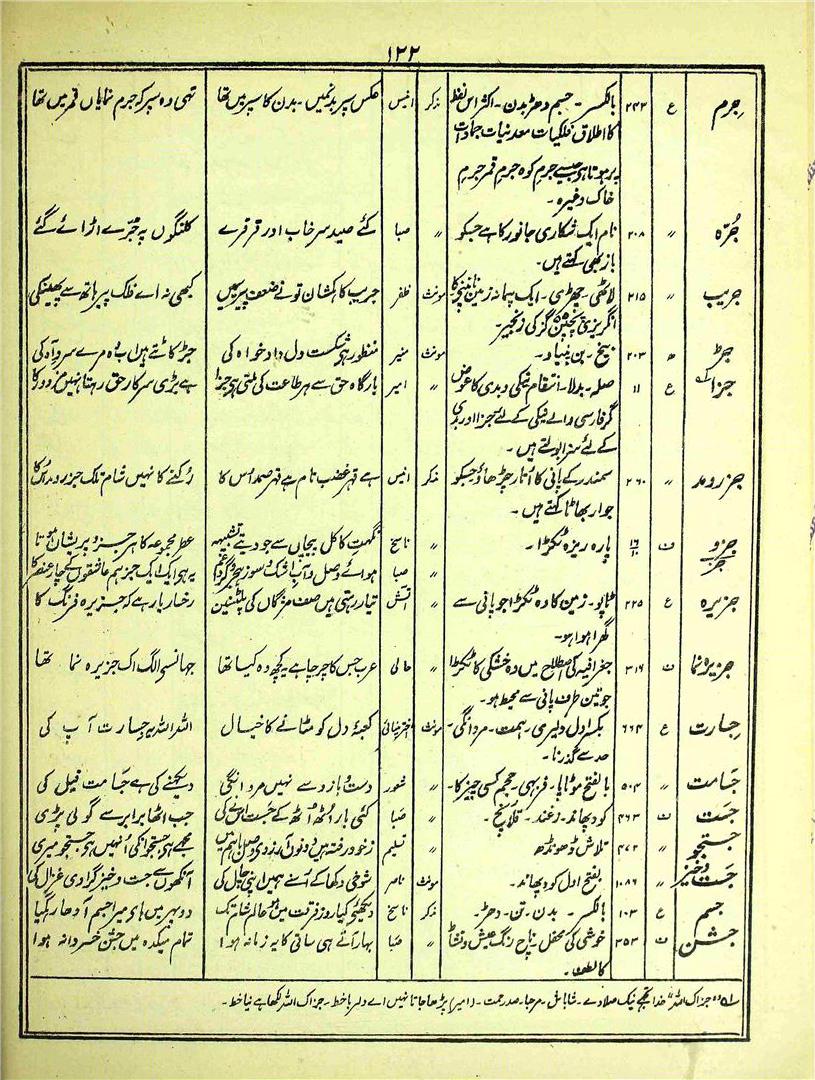 ۱۲۲
جِرم ع ۲۴۳ بالکسر - جسم دھڑ بدن - اکثر اس لفظ مذکر انیس عکس سپر بدنمیں - بدن کا سپر میں تھا تھی وہ سپر کہ جرم نمایاں قمر میں تھا
کا اطلاق فلکیات معدنیات جمادات
پر ہوتا ہی جیسے جرم کوہ جرم قمر جرم
خاک وغیرہ -
جُرّہ 〃 ۲۰۸ نام ایک شکاری جانور کا ہے جسکو 〃 صبا کئے صید سرخاب اور قرقرے کلنگوں پہ جُرّے اڑائے گئے
باز بھی کہتے ہیں -
جریب 〃 ۲۱۵ لاٹھی - چھڑی - ایک پیمانہ زمین ناپنے کا مونث ظفر جریب کاہکشان تونے ضعف پیری میں کبھی نہ اے فلک پیر ہاتھ سے پھینکی
انگریزی پچپن گز کی زنجیر -
جڑ ھ ۲۰۳ بیخ - بن بنیاد - مونث منیر منظور ہی شکست دل داد خواہ کی جڑ کاٹتے ہیں اب وہ مرے سرو آہ کی
جزا ع ۱۱ صلہ - بدلا - انتقام نیکی و بدی کا عوض 〃 امیر بارگاہ حق سے ہر طاعت کی ملتی ہی جزا ہے بڑی سرکار حق رہتا نہیں مزدور کا
گر فارسی والے نیکی کے لئے جزا اور بدی
کے لئے سزا بولتے ہیں -
جزر و مد 〃 ۲۶۰ سمندر کے پانی کا اُتار چڑھاؤ جسکو مذکر انیس ہے قہر غضب نام ہے قہر صمد اُس کا رُکنے کا نہیں شام تلک جزر و مد اُسکا
جوار بھاٹا کہتے ہیں -
جزو ف ۱۶ پارہ ریزہ ٹکڑا - 〃 ناسخ نکہت کاکل پیچاں سے جو دیتے تشبیہ عطر مجموعہ کا ہر جزو پریشاں ہوتا
جز ۱۰ 〃 صبا ہوائے وصل و آب اشک و سوز ہجر و گرد غم یہی ایک ایک جز ہم عاشقوں کے چار عنصر کا
جزیرہ ع ۲۲۵ ٹاپو - زمین کا وہ ٹکڑا جو پانی سے 〃 آتش تیار رہتی ہیں صف مژگاں کی پلٹنیں رخسار یار ہے کہ جزیرہ فرنگ کا
گھرا ہوا ہو -
جزیرہ نما ف ۳۱۶ جغرافیہ کی اصطلاح میں وہ خشکی کا ٹکڑا 〃 حالی عرب جس کا چرچا ہے یہ کچھ وہ کیا تھا جہاں سے الگ اک جزیرہ نما تھا
جو تین طرف پانی سے محیط ہو -
جِسارت ع ۶۶۴ بکسر اول دلیری - ہمت - مردانگی - مونث کعبۂ دل کو مٹانے کا خیال اللہ اللہ یہ جسارت آپ کی
حد سے گذرنا -
جَسامت 〃 ۵۰۴ بالفتح موٹاپا - فربہی - حجم کسی چیز کا - 〃 شعور دست و بازو سے نہیں مردانگی دیکھنے کی ہے جسامت فیل کی
جَست ف ۴۶۳ کود پھاند - زغند - قلانچ - 〃 صَبا کئی بار اُٹھ اُٹھ کے جست اسنے کی جب اٹھا برابر سے گولی پڑی
جستجو 〃 ۴۷۲ تلاش ڈھونڈھ 〃 تسلیم زخود رفتہ ہیں دونوں آرزوی وصل باہم میں مجھے ہی جستجو انکی اُنہیں ہی جستجو میری
جَست و خیز 〃 ۱۰۸۶ بفتح اول کود پھاند - مونث ناصر شوخی دکھا کے اُسنے ہمیں اپنی چال کی آنکھوں سے جست و خیز گرا دی غزال کی
جسم ع ۱۰۳ بالکسر - بدن - تن - دھڑ - مذکر ناسخ دیکھئے کیا روز فرقت میں ہو عالم شام تک دوپہر میں ہای میرا جسم آدھا رہگیا
جشن ف ۳۵۳ خوشی کی محفل - ناچ رنگ عیش و نشاط 〃 صَبا بہار آتے ہی ساقی کا یہ زمانہ ہوا تمام میکدہ میں جشن خسروانہ ہوا
کا لطف -
لہ "جزاک اللہ" خدا تجھے نیک صلا دے - شاباش - مرحبا - صد رحمت - (امیر) پڑھا جاتا نہیں اے دلربا خط - جزاک اللہ لکھا ہے نیا خط -